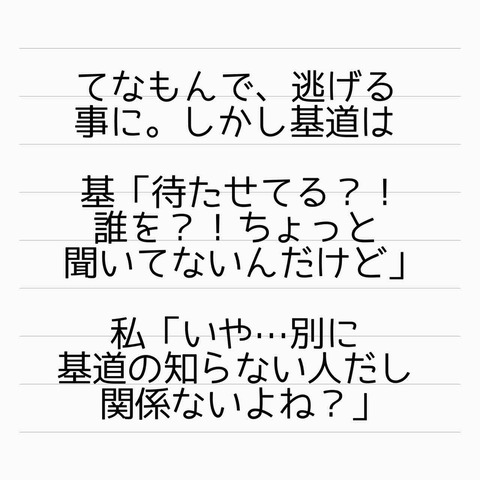 てなもんで、逃げる
事に。しかし基道は
基「待たせてる？！
誰を？！ちょっと
聞いてないんだけど」
私「いや…別に
基道の知らない人だし
関係ないよね？」